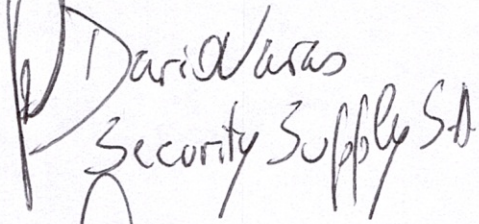 Dario Varas
Security Supply S.A